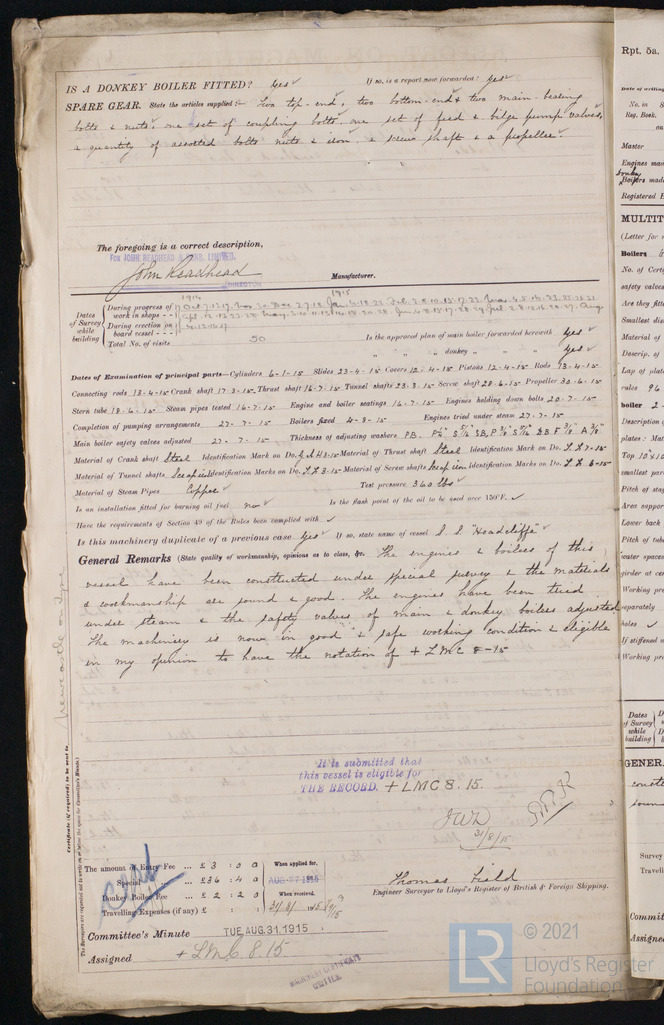 IS A DONKEY BOILER FITTED? Yes If so, is a report now forwarded? Yes
SPARE GEAR. State the articles supplied:- Two top-end, two bottom-end & two main-bearing
bolts & nuts, one set of coupling bolts, one set of feed & bilge pump valves,
a quantity of assorted bolts nuts & iron, a screw shaft & a propeller.
The foregoing is a correct description,
FOR JOHN READHEAD & SONS, LIMITED.
John Readhead Manufacturer.
DIRECTOR
1914 1915
Dates of Survey while building
During progress of work in shops --
During erection on board vessel ---
Total No. of visits 50
Is the approved plan of main boiler forwarded herewith Yes
" " " donkey " " Yes
Dates of Examination of principal parts—Cylinders 6-1-15 Slides 23-4-15 Covers 12-4-15 Pistons 12-4-15 Rods 13-4-15
Connecting rods 13-4-15 Crank shaft 17-3-15 Thrust shaft 16-7-15 Tunnel shafts 23-3-15 Screw shaft 28-6-15 Propeller 30-6-15
Stern tube 18-6-15 Steam pipes tested 16-7-15 Engine and boiler seatings 16-7-15 Engines holding down bolts 20-7-15
Completion of pumping arrangements 27-7-15 Boilers fixed 4-8-15 Engines tried under steam 27-7-15
Main boiler safety valves adjusted 27-7-15 Thickness of adjusting washers
Material of Crank shaft Steel Identification Mark on Do. Material of Thrust shaft Steel Identification Mark on Do.
Material of Tunnel shafts Identification Marks on Do. Material of Screw shafts Identification Marks on Do.
Material of Steam Pipes Copper Test pressure 360 lbs
Is an installation fitted for burning oil fuel no Is the flash point of the oil to be used over 150°F.
Have the requirements of Section 49 of the Rules been complied with
Is this machinery duplicate of a previous case Yes If so, state name of vessel S.S. "Headcliffe"
General Remarks (State quality of workmanship, opinions as to class, &c. The engines & boilers of this
vessel have been constructed under special survey & the materials
& workmanship are sound & good. The engines have been tried
under steam & the safety valves of main & donkey boilers adjusted
The machinery is now in good & safe working condition & eligible
in my opinion to have the notation of + LMC 8-15
Newcastle on Tyne
Certificate (if required) to be sent to
(The Surveyors are requested not to write on or below the space for Committee's Minute.)
It is submitted that
this vessel is eligible for
THE RECORD. + LMC 8.15.
JWD
31/8/15
The amount of Entry Fee ... £ 3 : 0 0 When applied for,
Special ... £36 : 4 0 AUG 27 1915
Donkey Boiler Fee ... £ 2 : 2 0 When received,
Travelling Expenses (if any) £ : : 31/8/15
Thomas Field
Engineer Surveyor to Lloyd's Register of British & Foreign Shipping.
Committee's Minute TUE.AUG.31.1915
Assigned + LMC 8.15
MACHINERY CERTIFICATE
WRITTEN.
LR © 2021
Lloyd's Register
Foundation
Rpt. 5a.
No. in
Reg. Book.
Master
Registered
MULTIT
(Letter for
Boilers
No. of Cert
safety valves
Are they fitt
Smallest dis
Material of
Descrip. of
Lap of plate
boiler 2
Description
Pitch of stay
Area suppor
Lower back
Pitch of tube
Working pre
If stiffened
Working pre
Dates
of Survey
while
building
GENER
Survey
Travell
Commit
Assigne